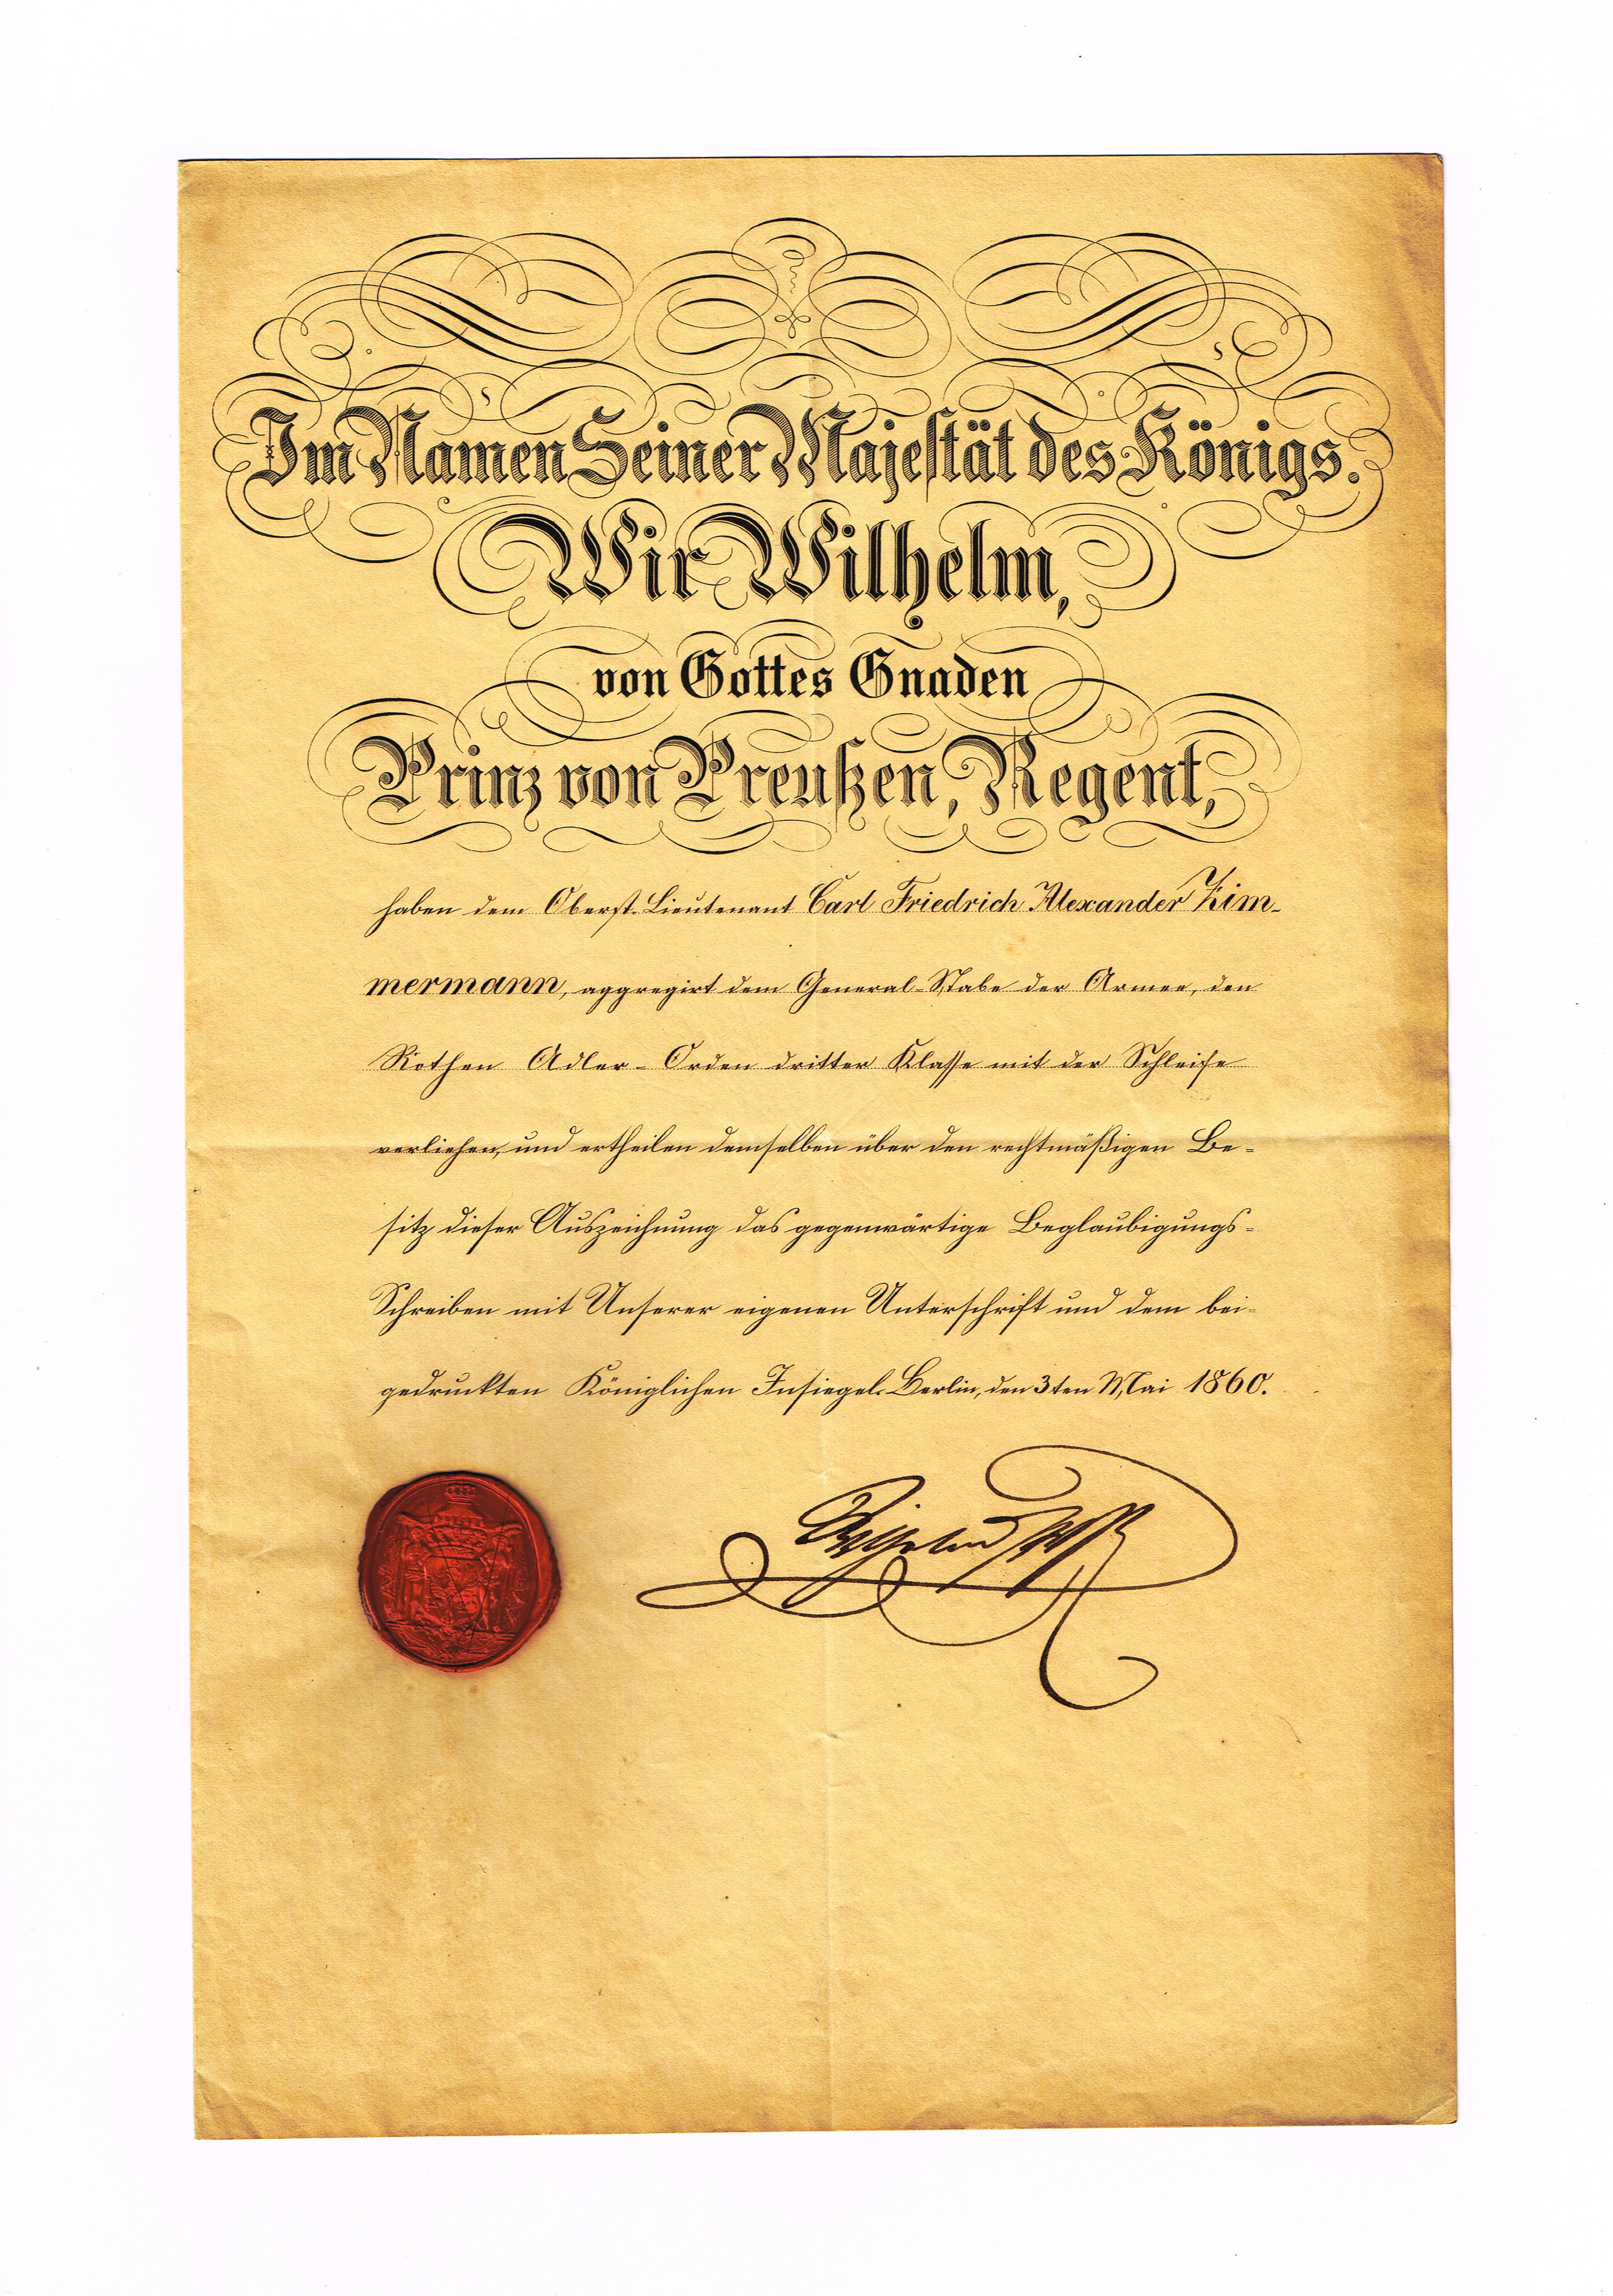 Im Namen Seiner Majestät des Königs.
Wir Wilhelm,
von Gottes Gnaden
Prinz von Preußen, Regent,
haben dem Oberst-Lieutenant Carl Friedrich Alexander Zim-
mermann, aggregirt dem General-Stabe der Armee, den
Rothen Adler-Orden dritter Klasse mit der Schleife
verliehen, und ertheilen demselben über den rechtmäßigen Be-
sitz dieser Auszeichnung das gegenwärtige Beglaubigungs-
Schreiben mit Unserer eigenen Unterschrift und dem bei-
gedruckten Königlichen Insiegel. Berlin, den 3ten Mai 1860.
Wilhelm